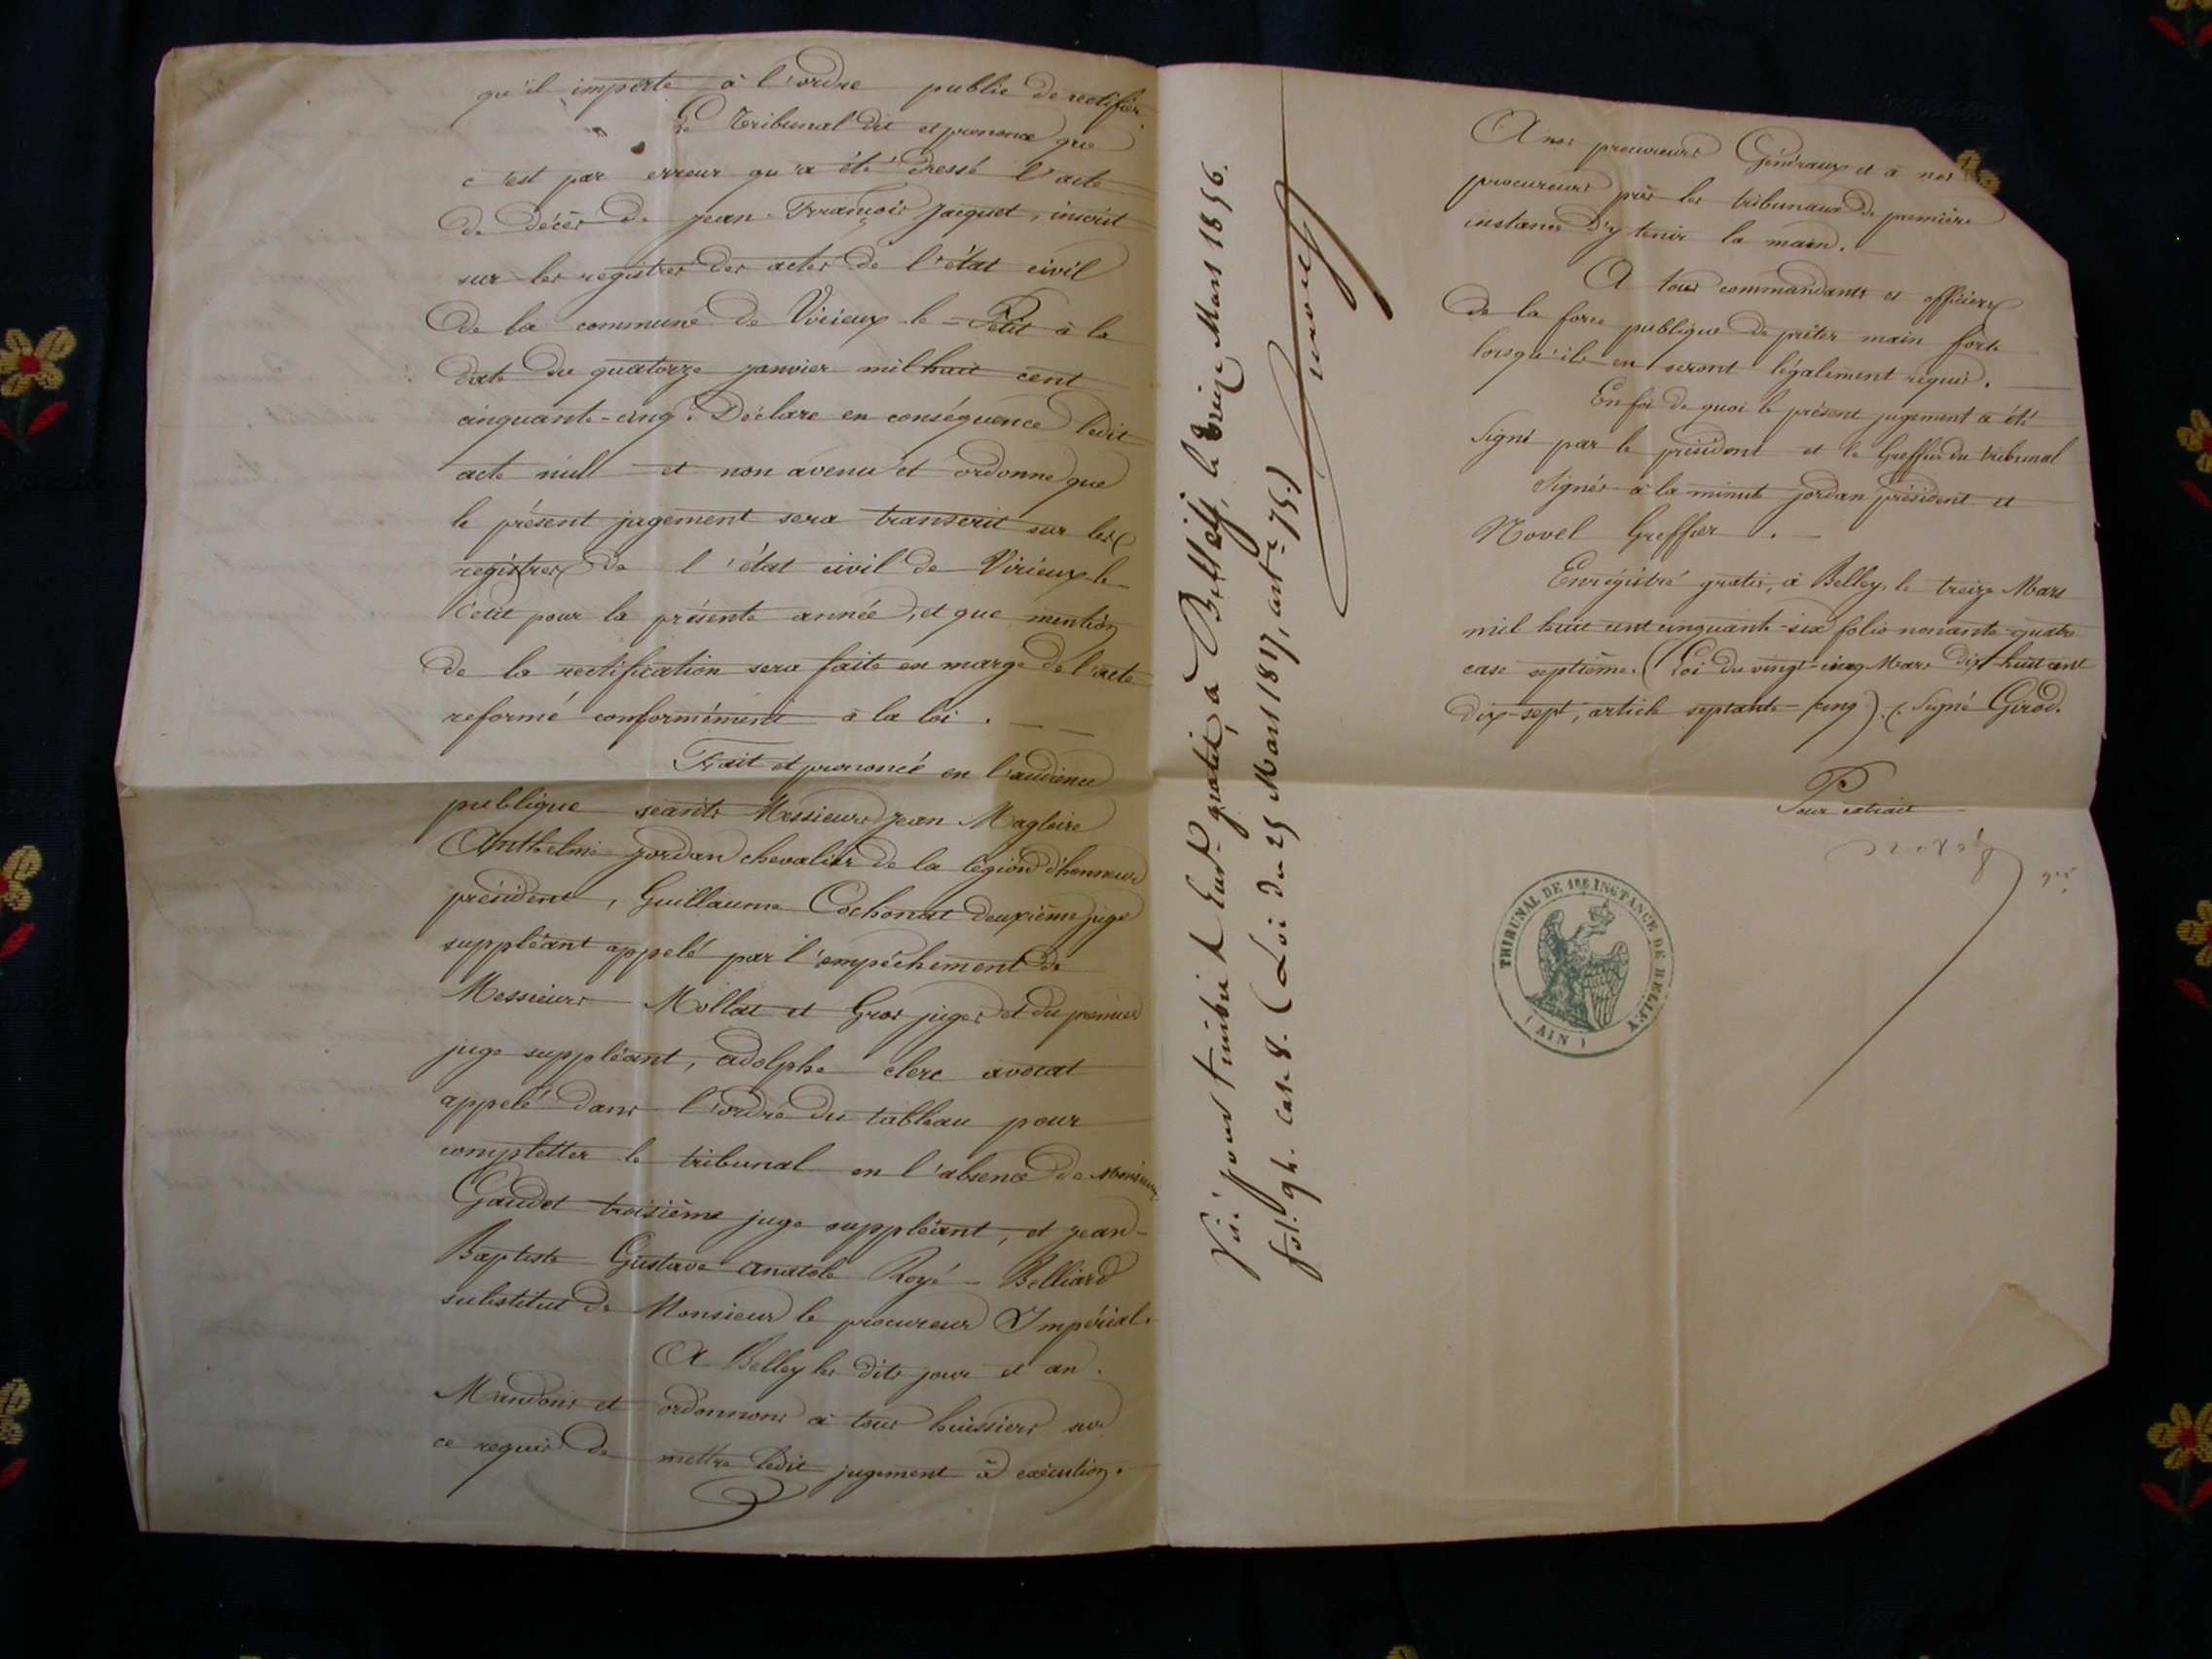 qu'il importe à l'ordre public de rectifier.
Le Tribunal dit et prononce que
c'est par erreur qu'a été dressé l'acte
de décès de jean-François Jacquet, inscrit
sur les registres des actes de l'état civil
de la commune de Virieux-le-Petit à la
date du quatorze janvier mil huit cent
cinquante-cinq. Déclare en conséquence ledit
acte null et non avenu et ordonne que
le présent jugement sera transcrit sur les
registres de l'état civil de Virieux-le-
Petit pour la présente année, et que mention
de la rectification sera faite en marge de l'acte
reformé conformément à la loi.
Fait et prononcé en l'audience
publique séants Messieurs jean Magloire
Anthelme jordan chevalier de la légion d'honneur
président, Guillaume Cochonat deuxième juge
suppléant appelé par l'empêchement de
Messieurs Mollat et Gros juges et du premier
juge suppléant, adolphe clerc avocat
appelé dans l'ordre du tableau pour
completter le tribunal en l'absence de Monsieur
Gaudet troisième juge suppléant, et jean-
Baptiste Gustave anatole Royé-Belliard
substitut de Monsieur le procureur Impérial.
A Belley les dits jour et an.
Mandons et ordonnons à tous huissiers sur
ce requis de mettre ledit jugement à exécution.
Vis. pour timbre & Enr.t gratis, à Belley, le treize Mars 1856.
fol. 94. case 8. (Loi du 25 Mars 1817, art.e 75.)
A nos procureurs Généraux et à nos
procureurs près les tribunaux de première
instance d'y tenir la main.
A tous commandants et officiers
de la force publique de prêter main forte
lorsqu'ils en seront légalement requis.
En foi de quoi le présent jugement a été
signé par le président et le Greffier du tribunal
Signés à la minute jordan président et
Novel Greffier.
Enrégistré gratis, à Belley, le treize Mars
mil huit cent cinquante-six folio nonante-quatre
case septième. (Loi du vingt-cinq Mars dix-huit cent
dix-sept, article septante-cinq). (Signé Girod.
Pour extrait
THIBUNAL DE 1RE INSTANCE DE BELLEY
(AIN)